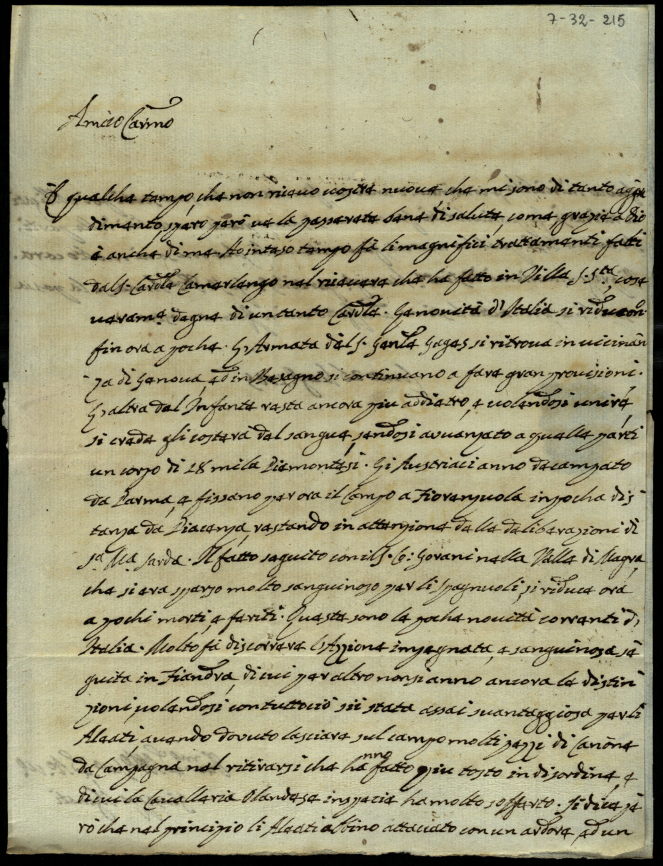 7-32-215
Amico Carmo
È qualche tempo, che non ricevo vostre nuove che mi sono di tanto aggra
dimento, spero però ve la passerete bene di salute, come grazie a Dio
è anche di me. Ho inteso tempo fà li magnifici trattamenti fatti
dal S. Cardle Camarlengo nel ricevere che ha fatto in Villa S. Sta, cose
verame degne di un tanto Cardle. Le novità d'Italia si riducono
fin ora a poche. L'Armata del S. Genle Gages si ritrova in vicinan
za di Genova, ed in Bisagno si continuano a fare gran provisioni.
L'altra del Infante resta ancora più addietro, e volendosi unire
si crede gli costerà del sangue, sendosi avvanzato a quelle parti
un corpo di 28 mila Piemontesi. Gl'Austriaci anno decampato
da Parma, e fissano per ora il Campo a Fiorenzuola in poca dis
tanza da Piacenza, restando in attenzione delle deliberazioni di
Sa Ma Sarda. Il fatto seguito con il S. G. Sovani nella Valle di Magra,
che si era sparso molto sanguinoso per li Spagnuoli, si riduce ora
a pochi morti, e feriti. Queste sono le poche novità correnti d'
Italia. Molto fà discorrere l'Azzione impegnata, e sanguinosa se
guita in Fiandra, di cui per altro non si anno ancora le distin
zioni, volendosi con tuttociò sii stata assai svantaggiosa per li
Aleati avendo dovuto lasciare sul campo molti pezzi di Canone
da Campagna nel ritirarsi che hanno fatto più tosto in disordine, e
di cui la Cavalleria Olandese in specie ha molto sofferto. Si dice pe
rò che nel principio li Aleati abbino attaccato con un ardore, ed un